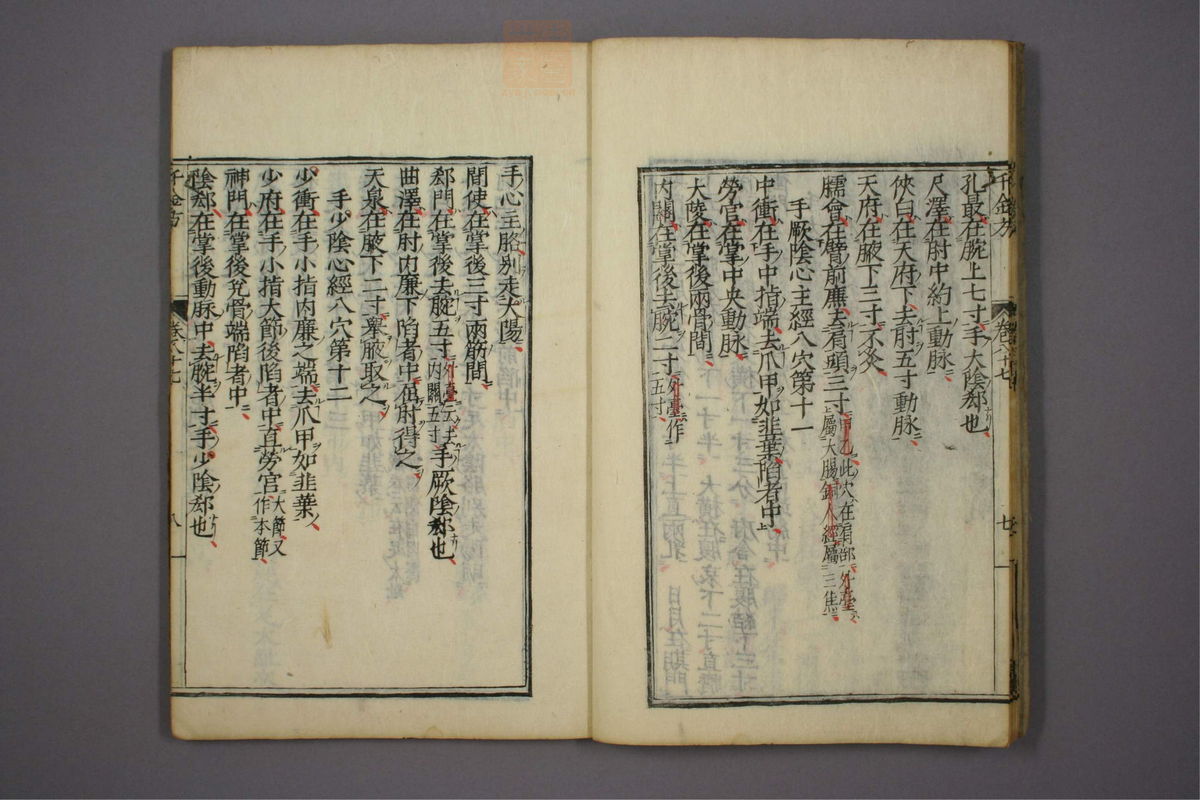 孔最在腕上七寸手大陰郄也
尺澤在肘中約上動脉
俠白在天府下去肘五寸動脉
天府在腋下三寸不灸
臑會在臂前廉去肩頭三寸甲乙此穴在肩部外臺屬大腸銅人經屬三焦
手厥陰心主經八穴第十一
中衝在手中指端去爪甲如韭葉陷者中
勞宮在掌中央動脉
大陵在掌後兩骨間
内關在掌後去腕二寸外臺作五寸
千金方
卷八十七
七
手心主胳别走大陽
間使在掌後三寸兩筋間
郄門在掌後去腕五寸外臺云去内關五寸手厥陰郄也
曲澤在肘内廉下陷者中屈肘得之
天泉在腋下二寸舉腋取之
手少陰心經八穴第十二
少衝在手小指内廉之端去爪甲如韭葉
少府在手小指大節後陷者中直勞宮大節又作本節
神門在掌後兌骨端陷者中
陰郄在掌後動脉中去腕半寸手少陰郄也
千金方
卷八十七
八